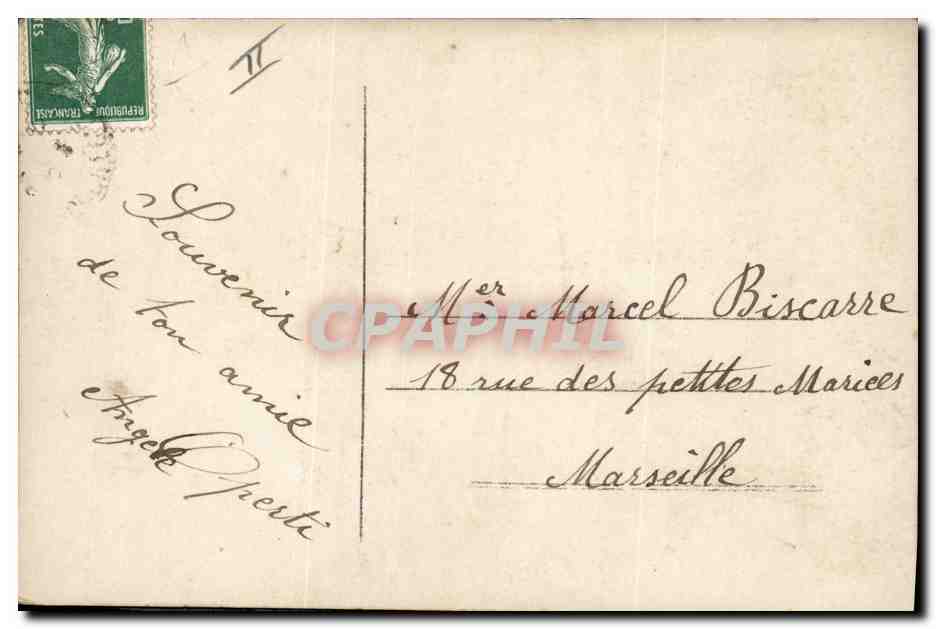 RÉPUBLIQUE FRANÇAISE
II
Souvenir
de ton amie
Angèle Operti
Mer Marcel Biscarre
18 rue des petites Mariees
Marseille
CPAPHIL